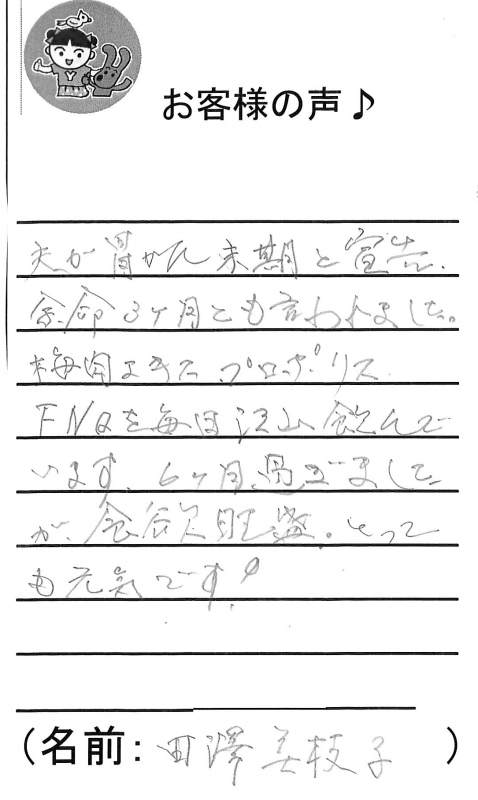 お客様の声♪
夫が胃がん末期と宣告、
余命3ヶ月とも言われました。
梅肉エキス プロポリス
FNQを毎日沢山飲んで
います。6ヶ月過ぎました
が、食欲旺盛。とって
も元気です!
(名前: 田澤美枝子 )